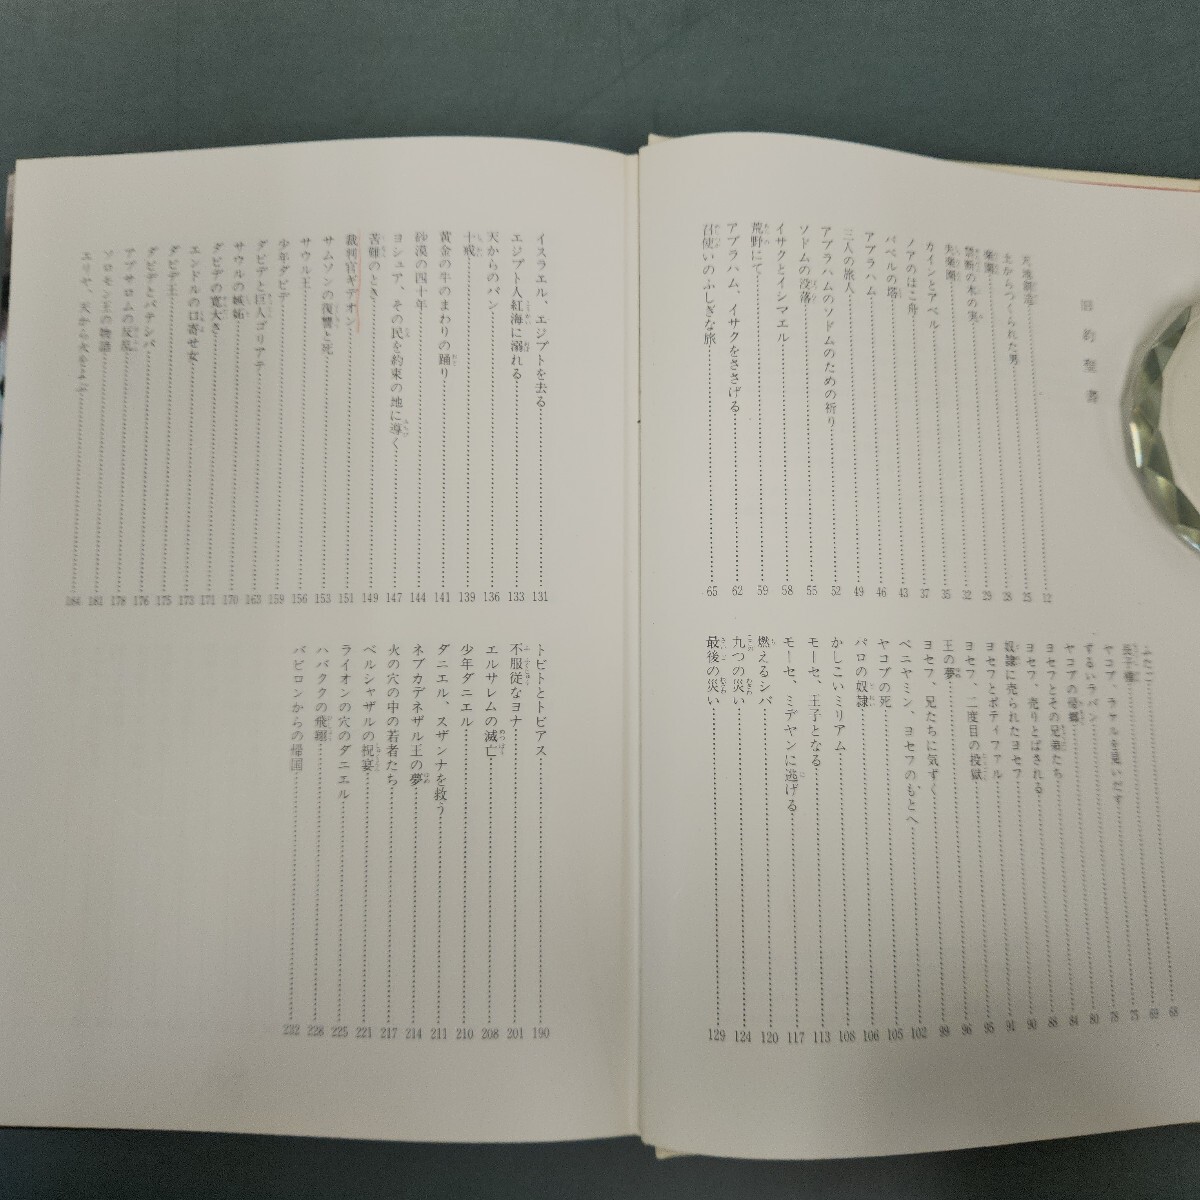 旧約聖書
天地創造……12
土からつくられた男……25
楽園……28
禁断の木の実……29
失楽園……32
カインとアベル……35
ノアのはこ舟……37
バベルの塔……43
アブラハム……46
三人の旅人……49
アブラハムのソドムのための祈り……52
ソドムの没落……55
イサクとイシマエル……58
荒野にて……59
アブラハム、イサクをささげる……62
召使いのふしぎな旅……65
ふたご……68
長子権……69
ヤコブ、ラケルを見いだす……75
ずるいラバン……78
ヤコブの帰郷……80
ヨセフとその兄弟たち……84
ヨセフ、売りとばされる……88
奴隷に売られたヨセフ……90
ヨセフとポティファル……91
ヨセフ、二度目の投獄……95
王の夢……96
ヨセフ、兄たちに気ずく……99
ベニヤミン、ヨセフのもとへ……102
ヤコブの死……105
パロの奴隷……106
かしこいミリアム……108
モーセ、王子となる……113
モーセ、ミデヤンに逃げる……117
燃えるシバ……120
九つの災い……124
最後の災い……129
イスラエル、エジプトを去る……131
エジプト人紅海に溺れる……133
天からのパン……136
十戒……139
黄金の牛のまわりの踊り……141
砂漠の四十年……144
ヨシュア、その民を約束の地に導く……147
苦難のとき……149
裁判官ギデオン……151
サムソンの復讐と死……153
サウル王……156
少年ダビデ……159
ダビデと巨人ゴリアテ……163
サウルの嫉妬……170
ダビデの寛大さ……171
エンドルの口寄せ女……173
ダビデ王……175
ダビデとバテシバ……176
アブサロムの反乱……178
ソロモン王の物語……181
エリヤ、天から火をよぶ……184
トビトとトビアス……190
不服従なヨナ……201
エルサレムの滅亡……208
少年ダニエル……210
ダニエル、スザンナを救う……211
ネブカデネザル王の夢……214
火の穴の中の若者たち……217
ベルシャザルの祝宴……221
ライオンの穴のダニエル……225
ハバククの飛翔……228
バビロンからの帰国……232